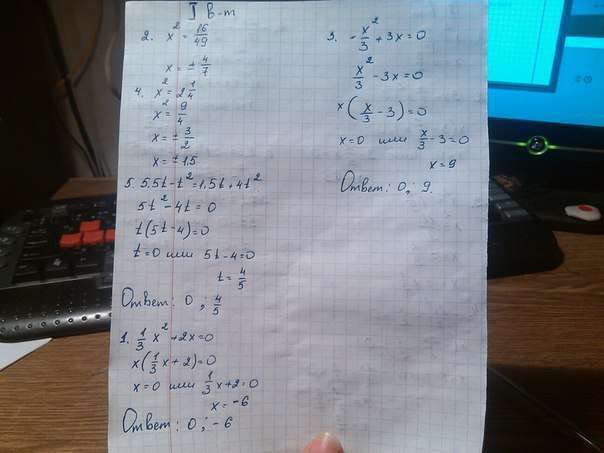 I в-т
2. x² = 16/49
x = ± 4/7
4. x² = 2 1/4
x² = 9/4
x = ± 3/2
x = ± 1,5
5. 5,5t - t² = 1,5t + 4t²
5t² - 4t = 0
t(5t - 4) = 0
t = 0 или 5t - 4 = 0
t = 4/5
Ответ: 0 ; 4/5
1. 1/3 x² + 2x = 0
x(1/3 x + 2) = 0
x = 0 или 1/3 x + 2 = 0
x = -6
Ответ: 0 ; -6
3. - x²/3 + 3x = 0
x²/3 - 3x = 0
x(x/3 - 3) = 0
x = 0 или x/3 - 3 = 0
x = 9
Ответ: 0 ; 9.